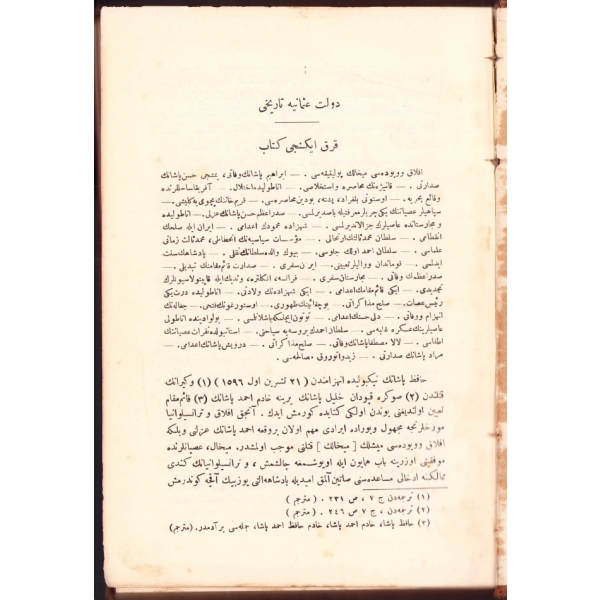 دولت عثمانیه تاریخی
قرق ایکنجی کتاب
افلاق وویوده‌سی میخالك پولیتیقه‌سی . — ابراهیم پاشانك وفاتی ، یمشجی حسن پاشانك
صدارتی . — قانیژه‌نك محاصره و استخلاصی . — اناطولیده اختلال . — آفریقا ساحللرنده
وقائع بحریه . — اوستونی بلغراد، پشته، بودین محاصره‌سی. —
سپاهیلر عصیاننك یکیچریلر معرفتیله باصدیرلمسی. — صدراعظم حسن پاشانك عزلی. — اناطولیده
و مجارستانده عاصیلرك جزالاندیرلمسی . — شهزاده محمودك اعدامی . — ایران ایله صلحك
انقطاعی . — سلطان محمد ثالثك ارتحالی . — مؤسسات سیاسیه‌نك انحطاطی، محمد ثالث زمانی
علماسی . — سلطان احمد اولك جلوسی . — بیوك والده سلطانك نفیی . — پادشاهك سنت
ایدلمسی . — قوماندان و والیلر تعیینی . — ایران سفری . — صدارت قائم‌مقامنك تبدیلی . —
صدراعظمك وفاتی . — مجارستان سفری . — فرانسه ، انکلتره ، وندیك ایله قاپیتولاسیونلرك
تجدیدی . — ایکی قائم‌مقامك اعدامی . — ایکی شهزاده‌نك ولادتی . — اناطولیده درت یکی
رئیس عصات . — صلح مذاکراتی . — بوچقاینك ظهوری . — اوسترغونك فتحی . — جغاله‌نك
انهزام و وفاتی . — دلی حسنك اعدامی . — توتون ایچلمکه باشلانلمسی . — بولوادینده اناطولی
عاصیلرینك عسکره غلبه‌سی . — سلطان احمدك بروسه‌یه سیاحتی . — استانبولده نفرات عصیاننك
اطفاسی . — لالا مصطفا پاشانك وفاتی . — صلح مذاکراتی . — درویش پاشانك اعدامی . —
مراد پاشانك صدارتی . — زیدواتوروق مصالحه‌سی .
حافظ پاشانك نیکبولیده انهزامندن ( ٢١ تشرین اول ١٥٩٦ ) (١) و کیرانك
قتلندن (٢) صوکره قپودان خلیل پاشانك یرینه خادم احمد پاشانك (٣) قائم‌مقام
تعیین اولندیغنی بوندن اولکی کتابده کورمش ایدك . آنجق افلاق و ترانسیلوانیا
مورخلرنجه مجهول و بوراده ایرادی مهم اولان بر وقعه احمد پاشانك عزلنی و بلکه
افلاق وویوده‌سی میشلك [ میخالك ] قتلنی موجب اولمشدر. میخال، عصیانلرنده
موفقیتی اوزرینه باب همایون ایله اویوشمغه چالشمش ، و ترانسیلوانیانك کندی
ممالکنه ادخالی مساعده‌سنی صاتین آلمق امیدیله پادشاهه التی یوز بیك آقچه کوندرمش
(١) ترجمه‌دن ج ٧ ، ص ٢٣١ . ( مترجم )
(٢) ترجمه‌دن ، ج ٧ ص ٢٤٦ . ( مترجم )
(٣) حافظ پاشا، خادم احمد پاشا، خادم حافظ احمد پاشا، جمله‌سی بر آدمدر. (مترجم)